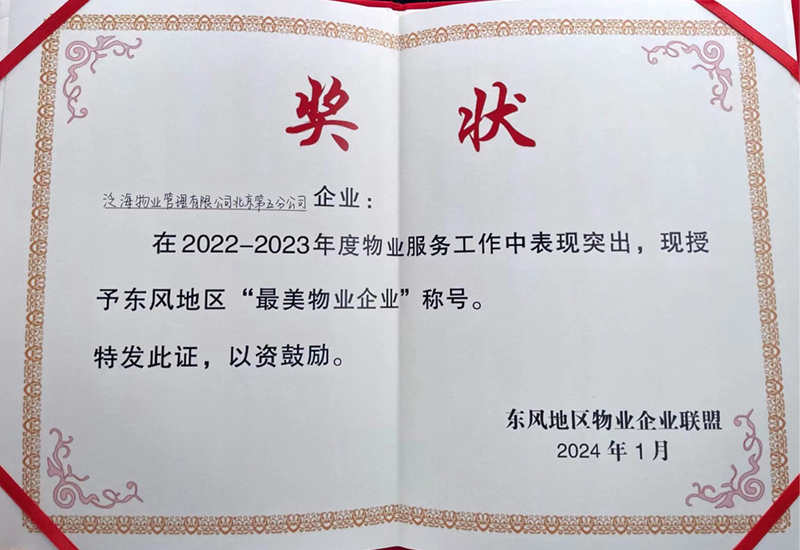 奖 状
泛海物业管理有限公司北京第五分公司 企业：
在2022-2023年度物业服务工作中表现突出，现授
予东风地区“最美物业企业”称号。
特发此证，以资鼓励。
东风地区物业企业联盟
2024年1月